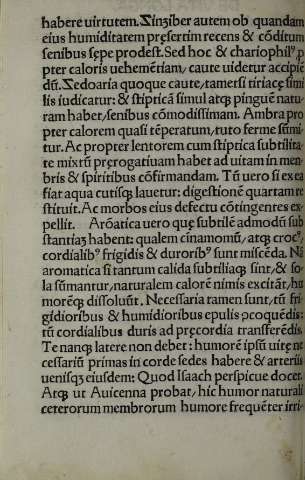 habere uirtutem. Zinziber autem ob quandam
eius humiditatem pręsertim recens & cōditum
senibus sępe prodest. Sed hoc & chariophilꝰ, p
pter caloris uehemētiam, caute uidetur accipiē
dū. Zedoaria quoque caute, tamersi tiriacę simi
lis iudicatur: & stipticā simul atqꝫ pinguē natu
ram habet, senibus cōmodissimam. Ambra pro
pter calorem quasi tēperatum, tuto ferme sumi
tur. Ac propter lentorem cum stiptica subtilita
te mixtū pręrogatiuam habet ad uitam in mem
bris & spiritibus cōfirmandam. Tū uero si ex ea
fiat aqua cutisqꝫ lauetur: digestionē quartam re
stituit. Ac morbos eius defectu cōtingentes ex
pellit. Arōatica uero quę subtilē admodū sub
stantiaꝫ habent: qualem cinamomū, atqꝫ crocꝰ,
cordialibꝰ frigidis & durioribꝰ sunt miscēda. Nā
aromatica si tantum calida subtiliaqꝫ sint, & so
la sūmantur, naturalem calorē nimis excitāt, hu
morēqꝫ dissoluūt. Necessaria tamen sunt, tū fri
gidioribus & humidioribus epulis ꝯcoquēdis:
tū cordialibus duris ad pręcordia transferēdis.
Te nanqꝫ latere non debet: humorē ipsū uitę ne
cessariū primas in corde sedes habere & arteriis
uenisqꝫ eiusdem: Quod Isaach perspicue docet.
Atqꝫ ut Auicenna probat, hic humor naturali
ceterorum membrorum humore frequēter irri-